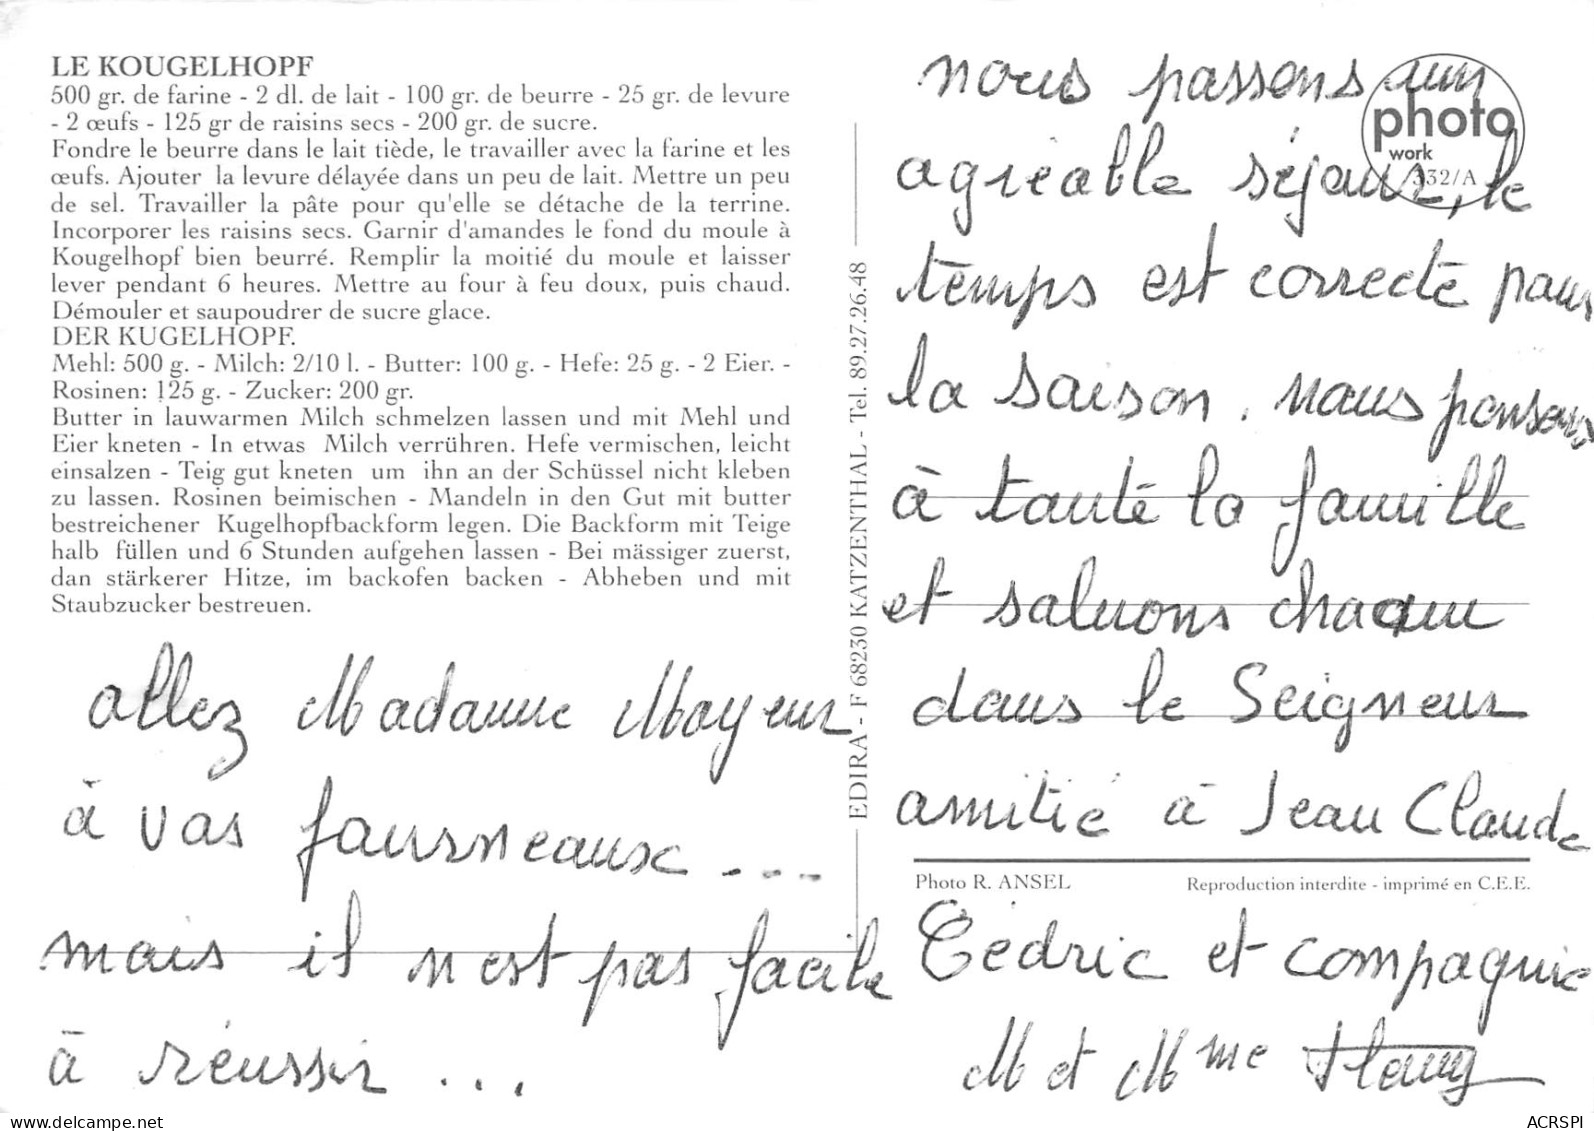 LE KOUGELHOPF
500 gr. de farine - 2 dl. de lait - 100 gr. de beurre - 25 gr. de levure
- 2 œufs - 125 gr de raisins secs - 200 gr. de sucre.
Fondre le beurre dans le lait tiède, le travailler avec la farine et les
œufs. Ajouter la levure délayée dans un peu de lait. Mettre un peu
de sel. Travailler la pâte pour qu'elle se détache de la terrine.
Incorporer les raisins secs. Garnir d'amandes le fond du moule à
Kougelhopf bien beurré. Remplir la moitié du moule et laisser
lever pendant 6 heures. Mettre au four à feu doux, puis chaud.
Démouler et saupoudrer de sucre glace.
DER KUGELHOPF.
Mehl: 500 g. - Milch: 2/10 l. - Butter: 100 g. - Hefe: 25 g. - 2 Eier. -
Rosinen: 125 g. - Zucker: 200 gr.
Butter in lauwarmen Milch schmelzen lassen und mit Mehl und
Eier kneten - In etwas Milch verrühren. Hefe vermischen, leicht
einsalzen - Teig gut kneten um ihn an der Schüssel nicht kleben
zu lassen. Rosinen beimischen - Mandeln in den Gut mit butter
bestreichener Kugelhopfbackform legen. Die Backform mit Teige
halb füllen und 6 Stunden aufgehen lassen - Bei mässiger zuerst,
dan stärkerer Hitze, im backofen backen - Abheben und mit
Staubzucker bestreuen.
allez Madame Mayeur
à vos fourneaux ...
mais il n'est pas facile
à réussir ...
EDIRA - F 68230 KATZENTHAL - Tel. 89.27.26.48
photo
work
332/A
nous passons un
agréable séjour, le
temps est correcte pour
la saison. nous pensons
à toute la famille
et saluons chacun
dans le Seigneur
amitié à Jean Claude
Photo R. ANSEL
Reproduction interdite - imprimé en C.E.E.
Cédric et compagnie
M et Mme
ACRSPI